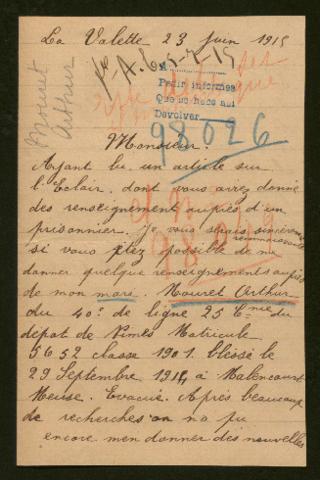 La Valette 23 Juin 1915
Mouret
Arthur
Pedir informes
Que se hace asi
Devolver
98026
Monsieur.
Ayant lu un article sur
l'Eclair. dont vous avez donné
des renseignements auprès d'un
prisonnier. Je vous serais sincèrement
reconnaissante
si vous etez possible de me
donner quelque renseignements auprès
de mon mari. Mouret Arthur
du 40e de ligne 25 Cie du
depot de Nimes Matricule
5652 classe 1901. blessé le
29 Septembre 1914 à Malencourt
Meuse. Evacué. Après beaucoup
de recherches on na pu
encore men donner des nouvelles